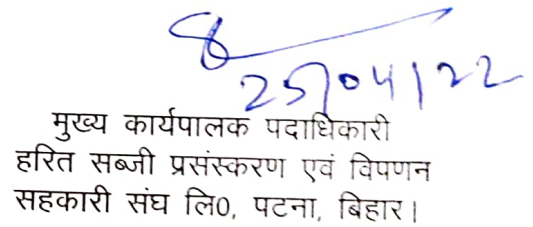 25/04/22
मुख्य कार्यपालक पदाधिकारी
हरित सब्जी प्रसंस्करण एवं विपणन
सहकारी संघ लि0, पटना, बिहार।